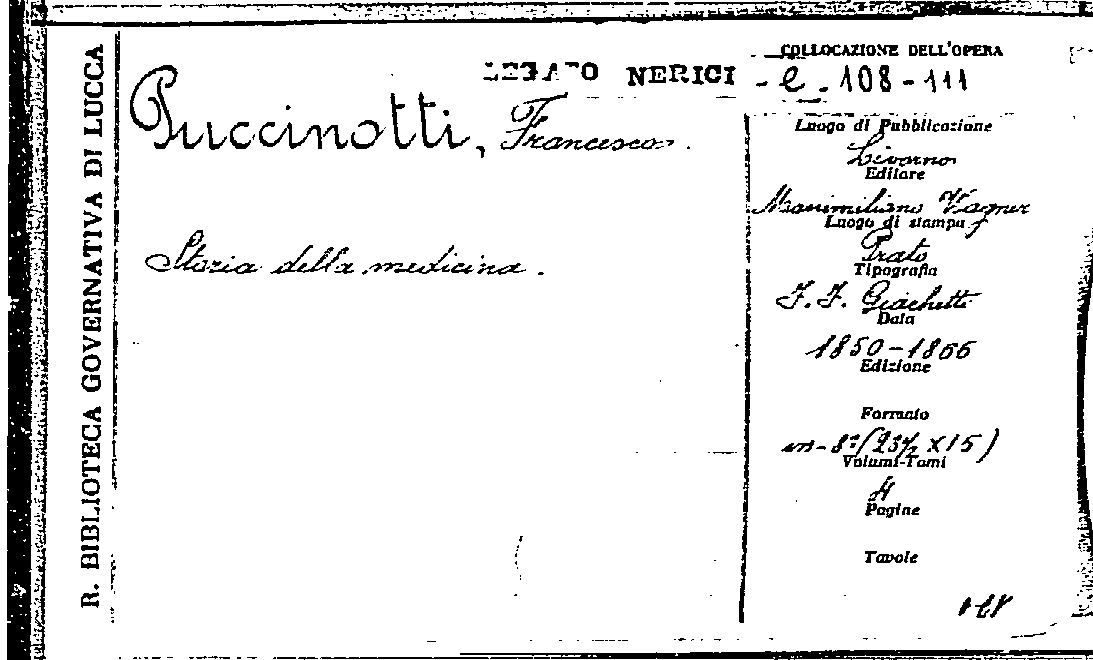 R. BIBLIOTECA GOVERNATIVA DI LUCCA
LEGATO NERICI
COLLOCAZIONE DELL'OPERA
- e - 108-111
Puccinotti, Francesco.
Storia della medicina.
Luogo di Pubblicazione
Livorno
Editore
Massimiliano Wagner
Luogo di stampa
Prato
Tipografia
F. F. Giachetti
Data
1850-1866
Edizione
Formato
in-8º (23½ X 15)
Volumi-Tomi
4
Pagine
Tavole